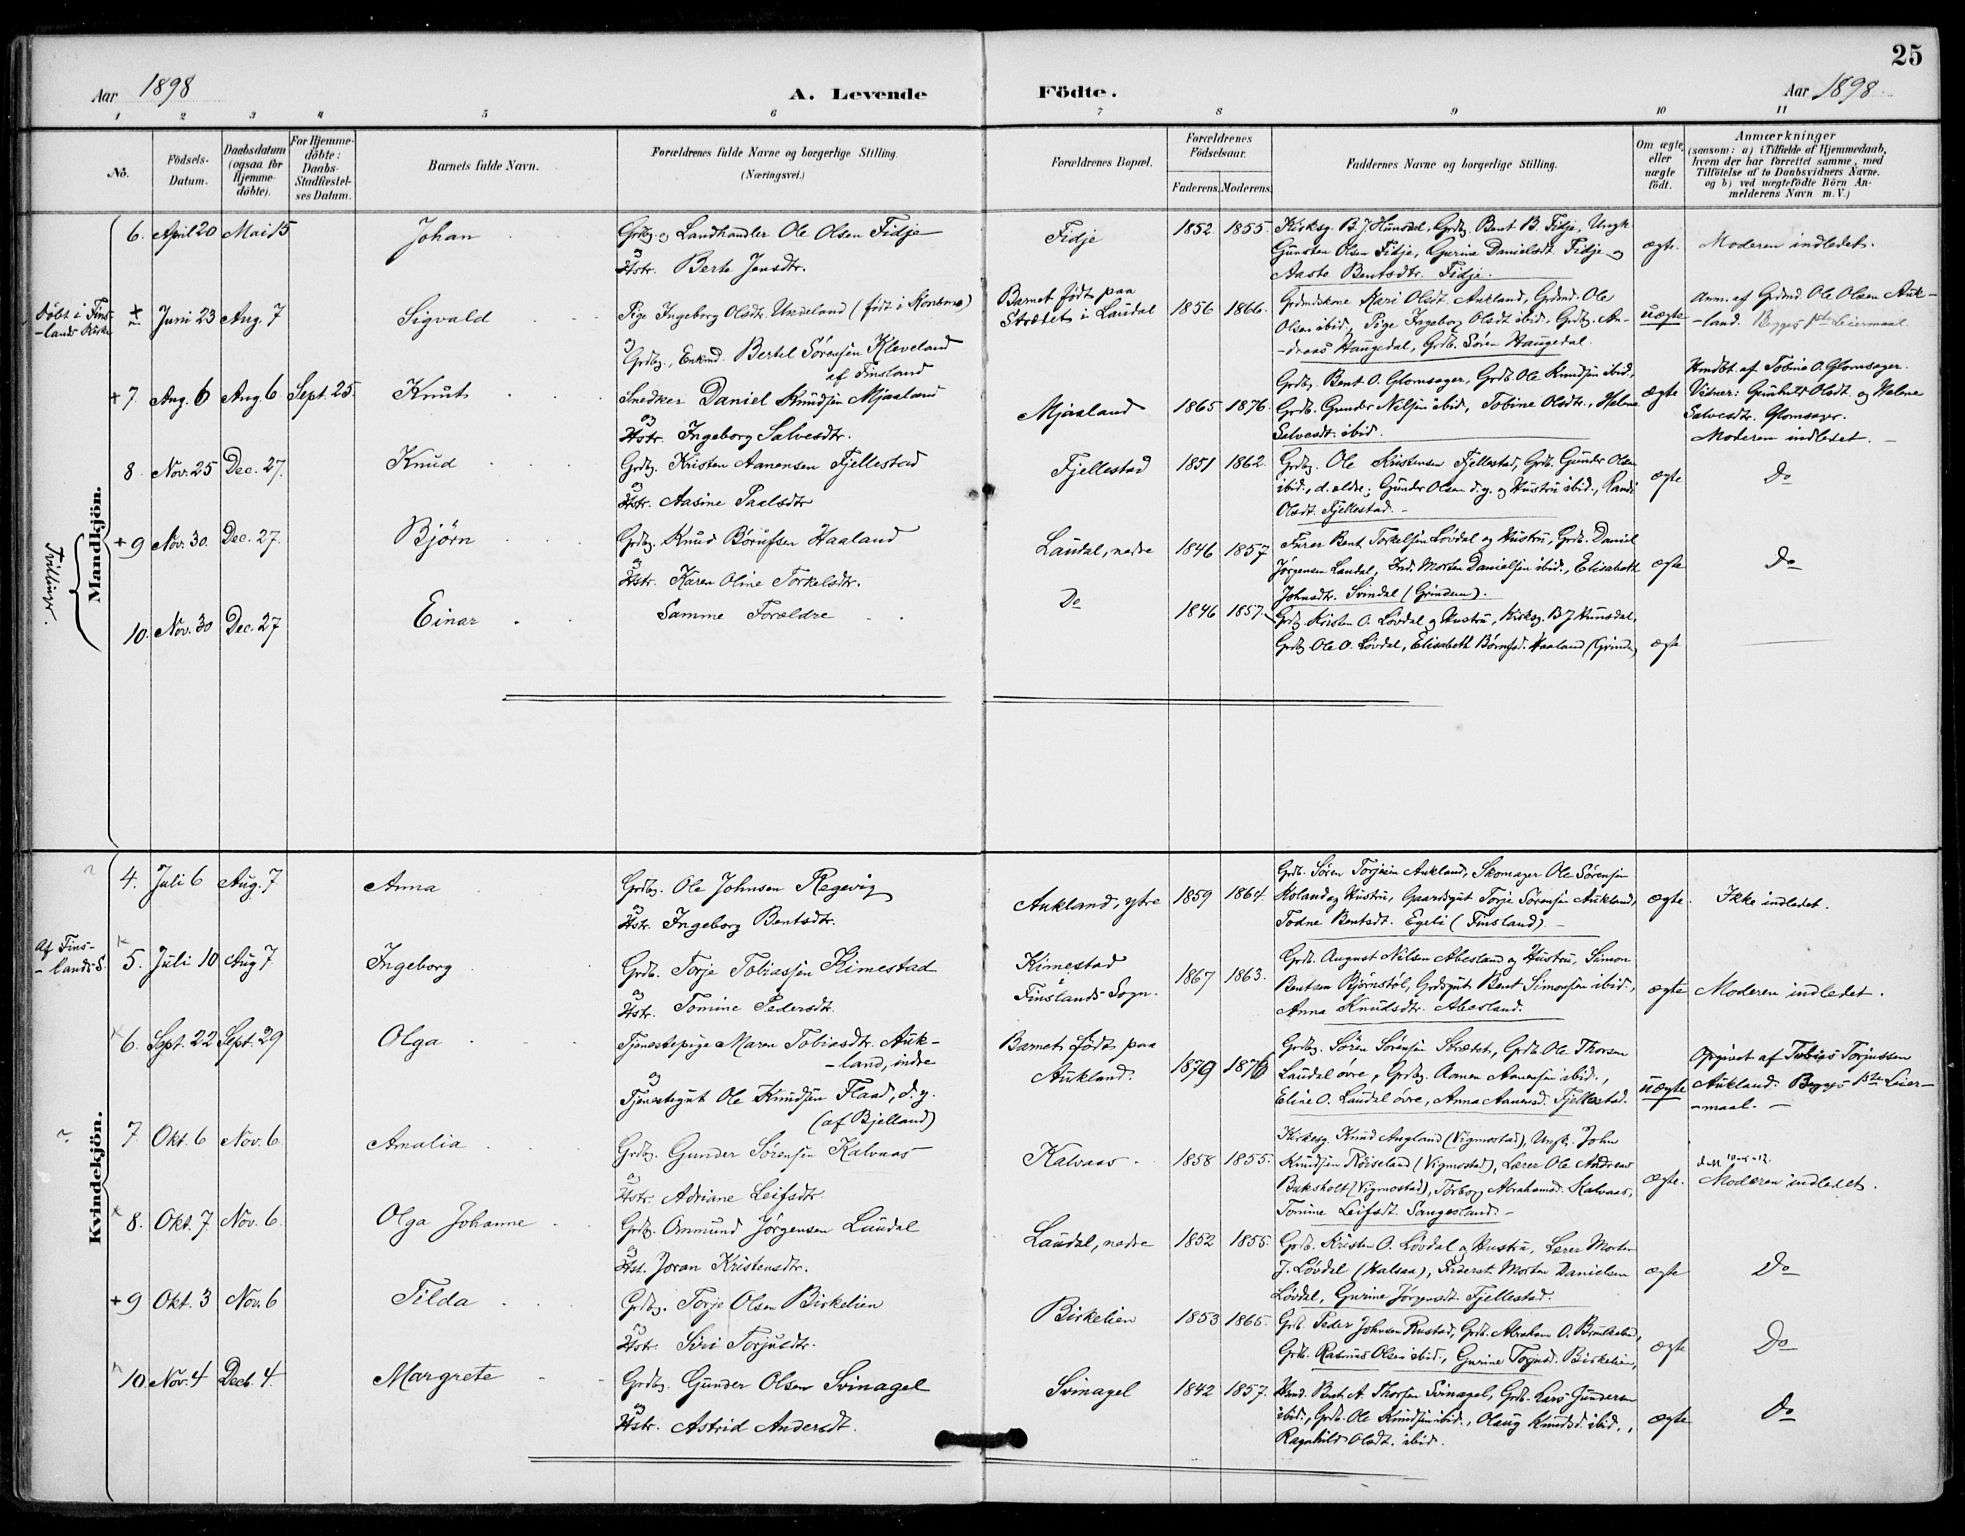 25
Aar 1898
A. Levende Födte.
Aar 1898
1 2 3 4 5 6 7 8 9 10 11
No.
Födsels-Datum.
Daabsdatum (ogsaa for Hjemmedöbte).
For Hjemmedöbte: Daabs-Stadfæstelses Datum.
Barnets fulde Navn.
Forældrenes fulde Navne og borgerlige Stilling. (Næringsvei.)
Forældrenes Bopæl.
Forældrenes Födselsaar.
Faderens. Moderens.
Faddernes Navne og borgerlige Stilling.
Om ægte eller uægte födt.
Anmærkninger
(saasom: a) i Tilfælde af Hjemmedaab, hvem der har forrettet samme, med Tilföielse af to Daabsvidners Navne, og b) ved uægtefödte Börn Anmelderens Navn m. V.)
Mandkjön.
6. April 20 Mai 15 Johan
Grdbg. og Landhandler Ole Olsen Fidje
og
Hstr. Berte Jensdtr.
Fidje 1852 1855.
Kirksg. B. J. Hunsdal, Grdbg. Bent B. Fidje, Ungk.
Gunsten Olsen Fidje, Gurine Danielsdt. Fidje og
Aaste Bentsdtr. Fidje.
ægte. Moderen indledet.
Døbt i Fins-
-lands Kirke
Juni 23 Aug. 7 Sigvald
Pige Ingeborg Olsdtr. Undeland (født i Konsmo)
og
Grdbg., Enkmd. Bertel Sørensen Kleveland
af Finsland
Barnet født paa
Strætet i Laudal
1856 1866.
Grdmdskone Kari Olsdt. Aukland, Grdmd. Ole
Olsen ibid, Pige Ingeborg Olsdt ibid., Grdbg. An-
-dreas Haugedal, Grdb. Søren Haugedal.
uægte
Anm. af Grdmd Ole Olsen Auk-
-land. Begges 1ste Leiermaal.
+ 7. Aug. 6 Aug. 6 Sept. 25. Knut
Snedker Daniel Knudsen Mjaaland
og
Hstr. Ingeborg Salvesdtr.
Mjaaland 1865 1876.
Grdbg. Bent O. Glomsager, Grdb. Ole Knudsen ibid.,
Grdb. Gunder Nilsen ibid, Tobine Olsdtr., Helene
Salvesdt. ibid.
ægte
Hmdbt. af Tobine O. Glomsager.
Vidner: Gunhild Olsdt. og Helene
Salvesdtr. Glomsager.
Moderen indledet. -
8. Nov. 25 Dec. 27. Knud
Grdbg. Kristen Aanensen Fjellestad
og
Hstr. Aasine Paalsdtr
Fjellestad 1851 1862.
Grdbg. Ole Kristensen Fjellestad, Grdb. Gunder Olsen
ibid., d. eldre; Gunder Olsen d. y. og Hustru ibid., Randi
Olsdt. Fjellestad. -
ægte Do
Tvillinger.
+ 9 Nov. 30. Dec. 27. Bjørn
Grdbg. Knud Børufsen Haaland
og
Hstr. Karen Oline Torkelsdtr.
Laudal, nedre 1846 1857
Furer Bent Torkelsen Løvdal og Hustru, Grdb. Daniel
Jørgensen Laudal, Inds. Morten Danielsen ibid., Elisabeth
Johnsdtr. Svindal (Grindem).
ægte Do
10. Nov. 30 Dec. 27 Einar
Samme Forældre
Do 1846 1857.
Grdbg. Kristen O. Løvdal og Hustru, Kirksg. B J Hunsdal,
Grdbg Ole O. Løvdal, Elisabeth Børufsd. Haaland (Grinde)
ægte
Kvindekjön.
4. Juli 6 Aug. 7 Anna
Grdbg. Ole Johnsen Regevig
og
Hstr. Ingeborg Bentsdtr.
Aukland, ytre 1859 1864.
Grdb. Søren Torjusen Aukland, Skomager Ole Sørensen
Holand og Hustru, Gaardsgut Torje Sørensen Aukland,
Todne Bentsdt. Egeli (Finsland) -
ægte. Ikke indledet.
Af Fins-
-lands S.
5. Juli 10 Aug 7 Ingeborg
Grdb. Torje Tobiassen Kimestad
og
Hstr. Tomine Pedersdt.
Kimestad
Finslands Sogn.
1867 1863.
Grdb. August Nilsen Abesland og Hustru, Simon
Bentsen Bjørnstøl, Grdsgut Bent Simonsen ibid.,
Anna Knudsdtr. Abesland.
ægte Moderen indledet.
6. Sept. 22 Sept. 29 Olga
Tjenestepige Maren Tobiasdtr. Auk-
-land, indre
og
Tjenestegut Ole Knudsen Flaad, d. y.
(af Bjelland)
Barnet født paa
Aukland.
1879 1876
Grdbg. Søren Sørensen Strætet, Grdb. Ole Thorsen
Laudal øvre, Grdbg. Aanen Aanensen ibid.,
Eline O. Laudal øvre, Anna Aanensd. Fjellestad.
uægte
Opgivet af Tobias Torjussen
Aukland. Begges 1ste Leier-
-maal. -
7 Okt. 6 Nov. 6 Amalia
Grdbg. Gunder Sørensen Kalvaas
og
Hstr. Adriane Leifsdtr.
Kalvaas. 1858 1855.
Kirkesg. Knud Augland (Vigmostad), Ungk. John
Knudsen Røiseland (Vigmostad), Lærer Ole Andreas
Buksholt (Vigmostad), Torborg Abrahamsd. Kalvaas,
Tomine Leifsdt. Sangesland -
ægte.
Moderen indledet.
8. Okt. 7. Nov. 6. Olga Johanne
Grdbg. Omund Jørgensen Laudal
og
Hst. Joran Kristensdtr.
Laudal, nedre 1852 1855.
Grdb. Kristen O. Løvdal og Hustru, Lærer Morten
J. Løvdal (Halsaa), Inderst. Morten Danielsen
Løvdal, Gurine Jørgensdt. Fjellestad.
ægte Do
+ 9 Okt. 3 Nov. 6 Tilda
Grdbg. Torje Olsen Birkelien
og
Hstr. Siri Torjusdtr.
Birkelien 1853 1865.
Grdb. Peder Johnsen Rustad, Grdb. Abraham O.
Grdb. Rasmus Olsen ibid., Gurine Torjusd. Birkelien,
ægte Do
10. Nov. 4 Decb. 4. Margrete
Grdbg. Gunder Olsen Svinagel
og
Hstr. Astrid Andersdt.
Svinagel 1842 1857.
Bent A. Thorsen Svinagel, Grdb. Lars Gundersen
ibid., Grdb. Ole Knudsen ibid., Olaug Knudsd. ibid.,
Ragnhild Olsdt. ibid.
ægte Do